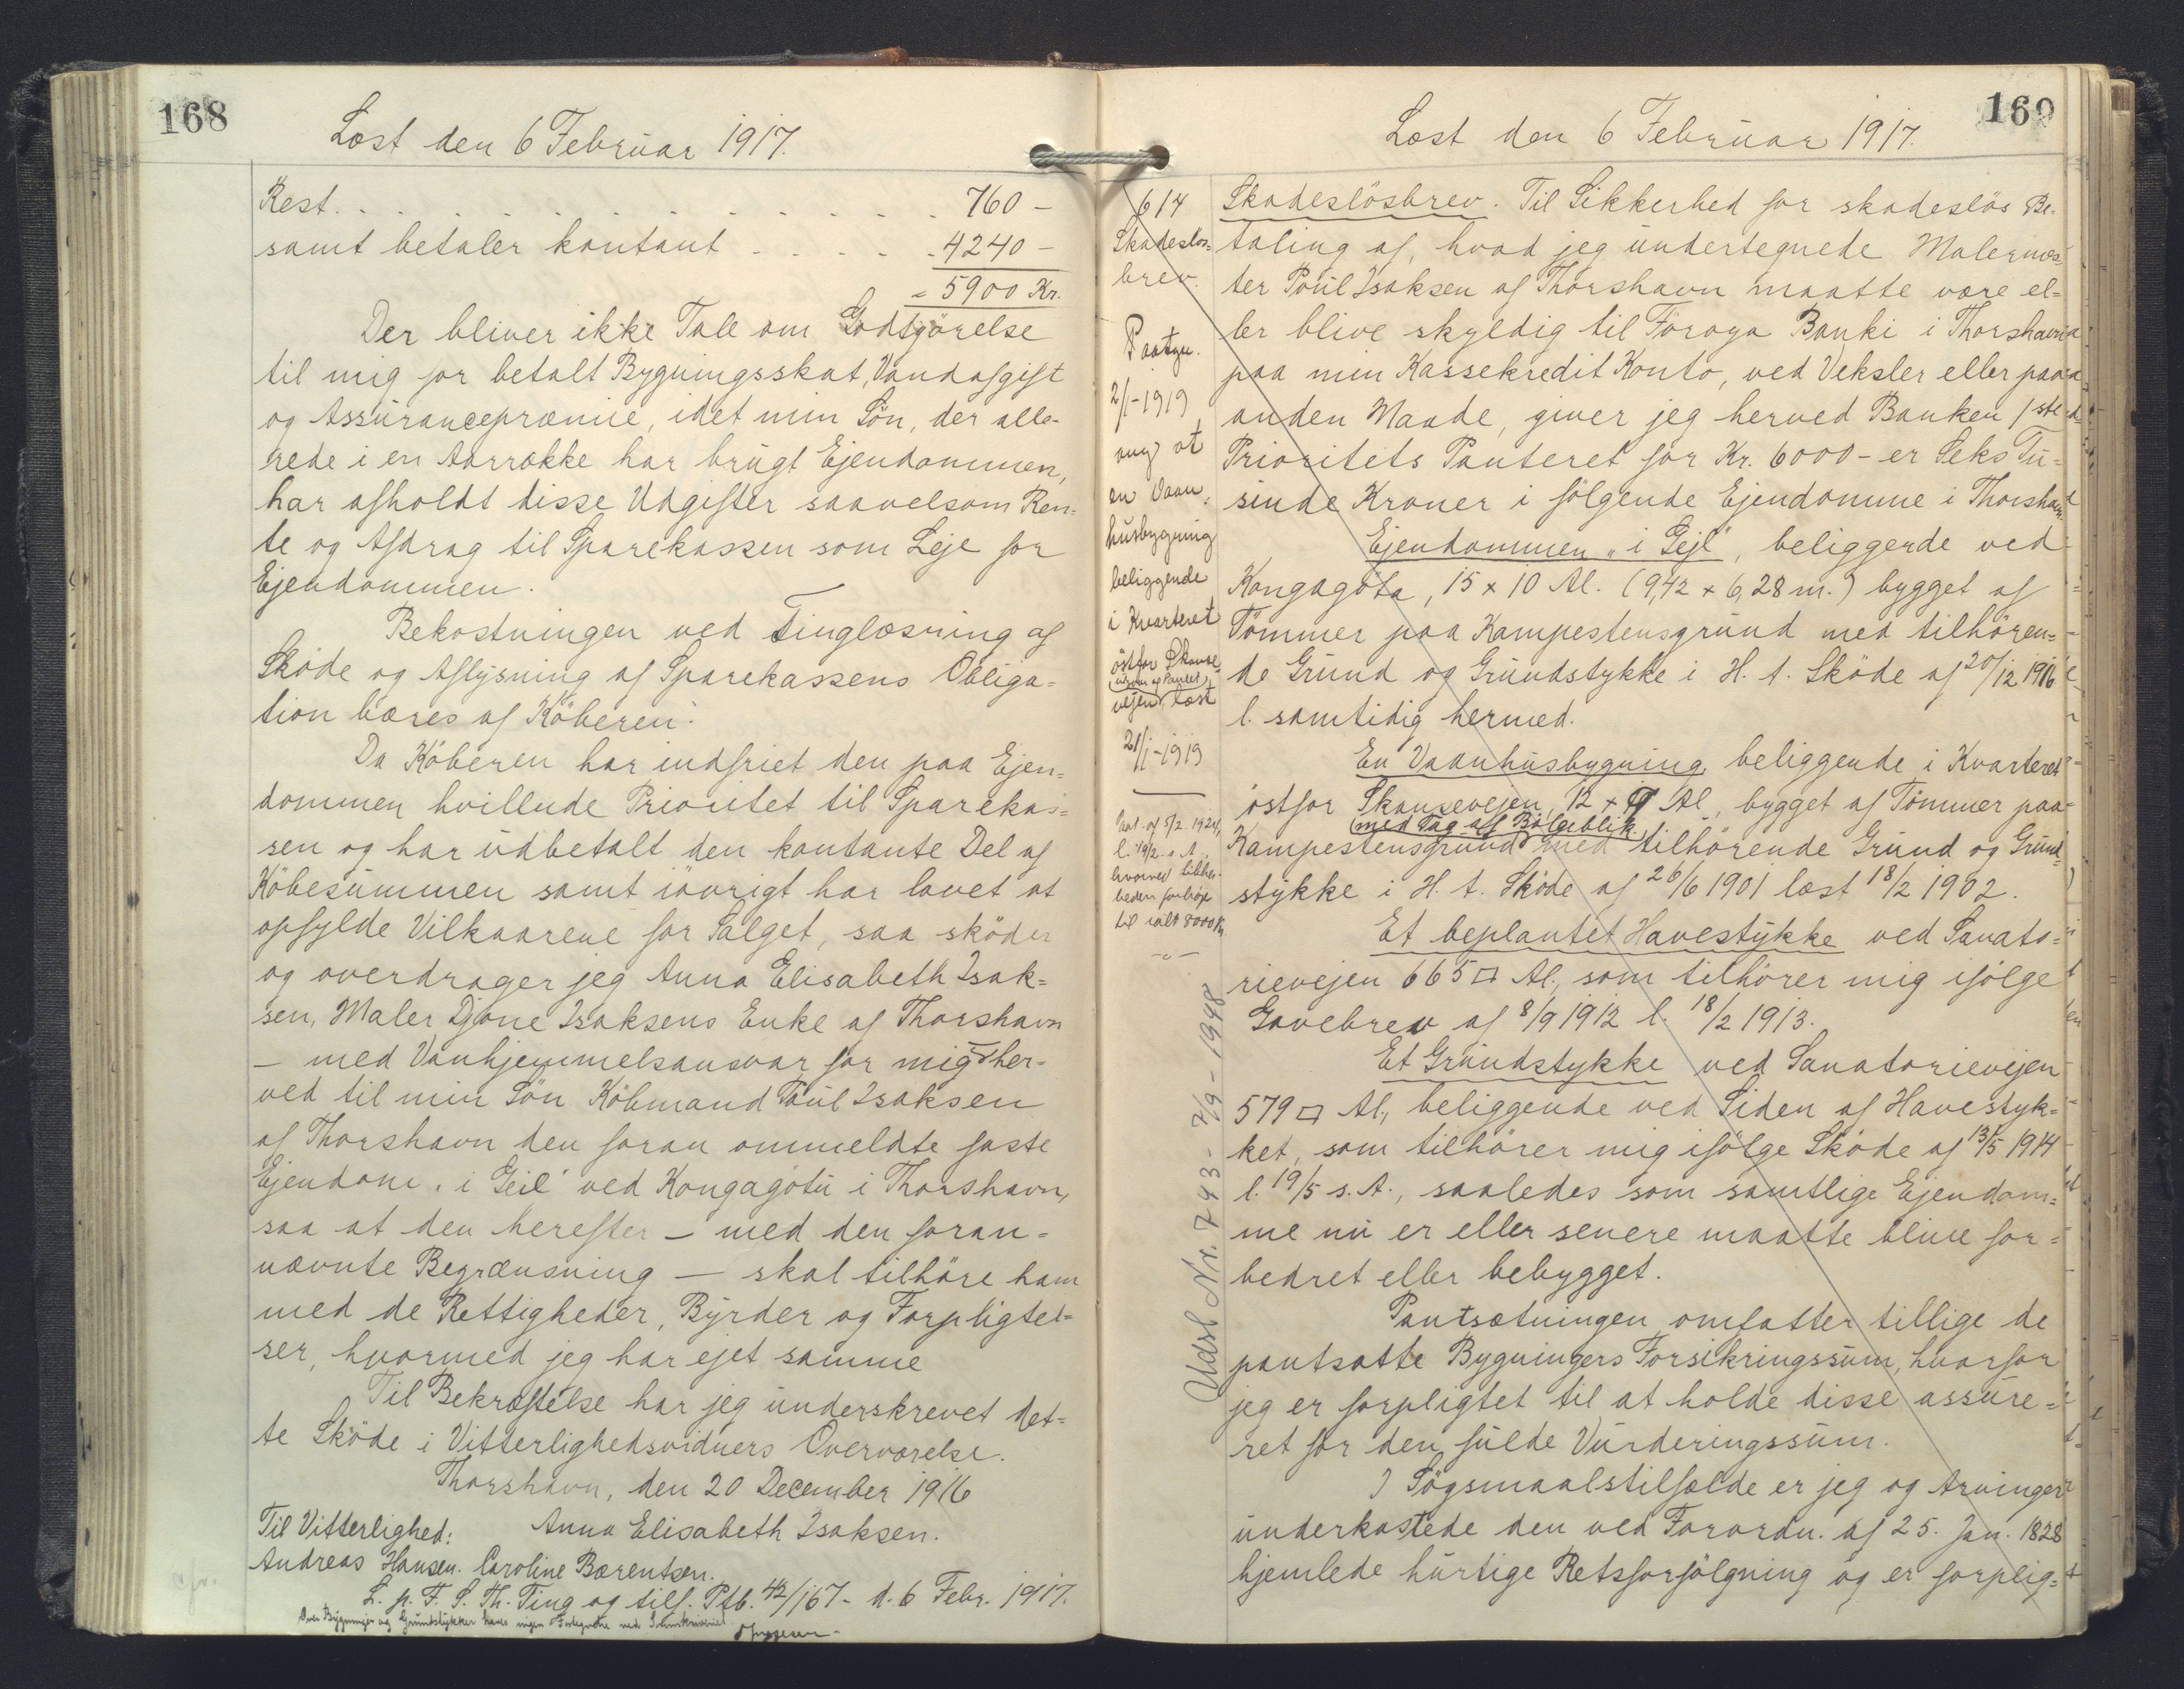 168
Læst den 6 Februar 1917.
Rest. . . . . . . . . . . . . 760 –
samt betaler kontant . . . . . 4240 –
= 5900 Kr.
Der bliver ikke Tale om Godtgörelse
til mig for betalt Bygningsskat, Vandafgift
og Assurancepræmie, idet min Sön, der alle-
rede i en Aarrække har brugt Ejendommen,
har afholdt disse Udgifter saavelsom Ren=
te og Afdrag til Sparekassen som Leje for
Ejendommen.
Bekostningen ved Tinglæsning af
Sköde og Aflysning af Sparekassens Obliga=
tion bæres af Köberen.
Da Köberen har indfriet den paa Ejen=
dommen hvillende Prioritet til Sparekas=
sen og har udbetalt den kontante Del af
Köbesummen samt iövrigt har lovet at
opfylde Vilkaarene for Salget, saa sköder
og overdrager jeg Anna Elisabeth Isak=
sen, Maler Djone Isaksens Enke af Thorshavn
– med Vanhjemmelsansvar for mig – her-
ved til min Sön Köbmand Poul Isaksen
af Thorshavn den foran ommeldte faste
Ejendom "i Geil" ved Kongagötu i Thorshavn,
saa at den herefter – med den foran=
nævnte Begrænsning – skal tilhöre ham
med de Rettigheder, Byrder og Forpligtel=
ser, hvormed jeg har ejet samme
Til Bekræftelse har jeg underskrevet det=
te Sköde i Vitterlighedsvidners Overværelse.
Thorshavn, den 20 December 1916
Til Vitterlighed: Anna Elisabeth Isaksen.
Andreas Hansen. Caroline Bærentsen.
L. p. F. S. Th. Ting og tilf. Ptb. 42/167 - d. 6 Febr. 1917.
Over Bygninger og Grundstykker haves ingen
169
Læst den 6 Februar 1917.
614
Skadeslös=
brev.
Paategn.
2/1-1919
ang at
en Vaan=
husbygning
beliggende
i Kvarteret
östfor Skanse
vejen læst
21/1-1919
Paat. af 5/2 1924,
l. 19/2 s. A.
hvorved Sikker-
heden forhöjes
til ialt 8000 Kr
-o-
Udsl Nr. 743 - 7/9 - 1948
Skadeslösbrev. Til Sikkerhed for skadeslös Be-
taling af, hvad jeg undertegnede Malermes=
ter Poul Isaksen af Thorshavn maatte være el=
ler blive skyldig til Föroya Banki i Thorshavn
paa min Kassekredit Konto, ved Veksler eller paa
anden Maade, giver jeg herved Banken 1ste
Prioritets Panteret for Kr. 6000 - er Seks Tu=
sinde Kroner i fölgende Ejendomme i Thorshavn
Ejendommen "i Gejl", beliggende ved
Kongagöta, 15 x 10 Al. (9,42 x 6,28 m.) bygget af
Tömmer paa Kampestensgrund med tilhören=
de Grund og Grundstykke i H. t. Sköde af 20/12 1916
l. samtidig hermed.
En Vaanhusbygning, beliggende i Kvarteret
östfor Skansevejen, 12 x 9 Al, bygget af Tömmer paa
(med Tag af Bölgeblik)
Kampestensgrund med tilhörende Grund og Grund=
stykke i H. t. Sköde af 26/6 1901 læst 18/2 1902.
Et beplantet Havestykke ved Sanato=
rievejen 665 □ Al., som tilhörer mig ifölge
Gavebrev af 8/9 1912 l. 18/2 1913.
Et Grundstykke ved Sanatorievejen
579 □ Al., beliggende ved Siden af Havestyk=
ket, som tilhörer mig ifölge Sköde af 13/5 1914
l. 19/5 s. A., saaledes som samtlige Ejendom=
me nu er eller senere maatte blive for=
bedret eller bebygget.
Pantsætningen omfatter tillige de
pantsatte Bygningers Forsikringssum, hvorfor
jeg er forpligtet til at holde disse assure=
ret for den fulde Vurderingssum.
I Sögsmaalstilfælde er jeg og Arvinger
underkastede den ved Forordn. af 25. Jan. 1828
hjemlede hurtige Retsforfölgning og er forplig=